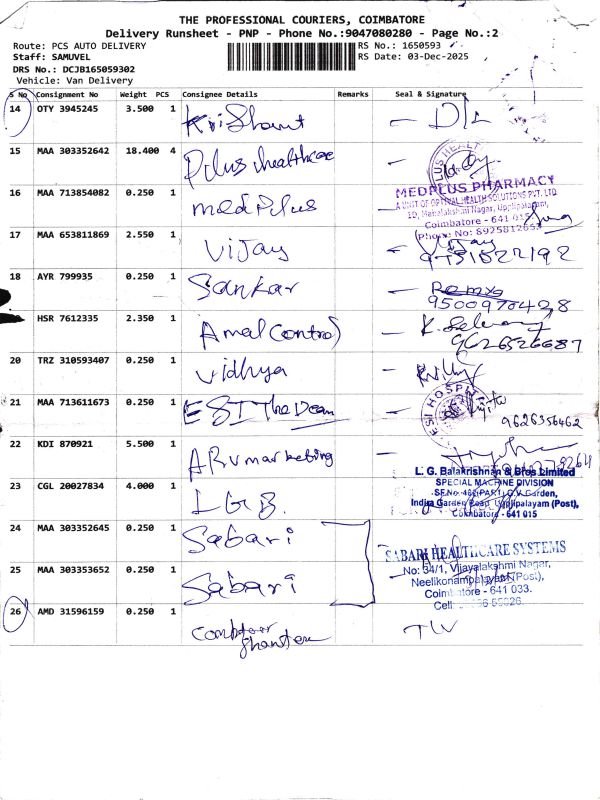 THE PROFESSIONAL COURIERS, COIMBATORE
Delivery Runsheet - PNP - Phone No.:9047080280 - Page No.:2
Route: PCS AUTO DELIVERY
RS No.: 1650593
Staff: SAMUVEL
RS Date: 03-Dec-2025
DRS No.: DCJB165059302
Vehicle: Van Delivery
S No Consignment No Weight PCS Consignee Details Remarks Seal & Signature
14 OTY 3945245 3.500 1 Krishant
15 MAA 303352642 18.400 4 Pilus healthcare
MEDPLUS PHARMACY
A UNIT OF OPTIVAL HEALTH SOLUTIONS PVT. LTD
16 MAA 713854082 0.250 1 medPlus
Mahalakshmi Nagar, Upplipalayam,
Coimbatore - 641 015
Phone No: 8925812653
17 MAA 653811869 2.550 1 Vijay
Vijay
18 AYR 799935 0.250 1 Sankar
Remya
9500970428
HSR 7612335 2.350 1 Amal Control
9626526687
20 TRZ 310593407 0.250 1 Vidhya
21 MAA 713611673 0.250 1 ESI The Dean
ESI HOSPITAL
9626356462
22 KDI 870921 5.500 1 ARV marketing
L. G. Balakrishnan & Bros Limited
SPECIAL MACHINE DIVISION
23 CGL 20027834 4.000 1 LGB.
SF.No. 466(PART), G.V. Garden,
Indira Garden Road, Upplipalayam (Post),
Coimbatore - 641 015
24 MAA 303352645 0.250 1 Sabari
SABARI HEALTHCARE SYSTEMS
No: 34/1, Vijayalakshmi Nagar,
25 MAA 303353652 0.250 1 Sabari
Neelikonampalayam (Post),
Coimbatore - 641 033.
26 AMD 31596159 0.250 1